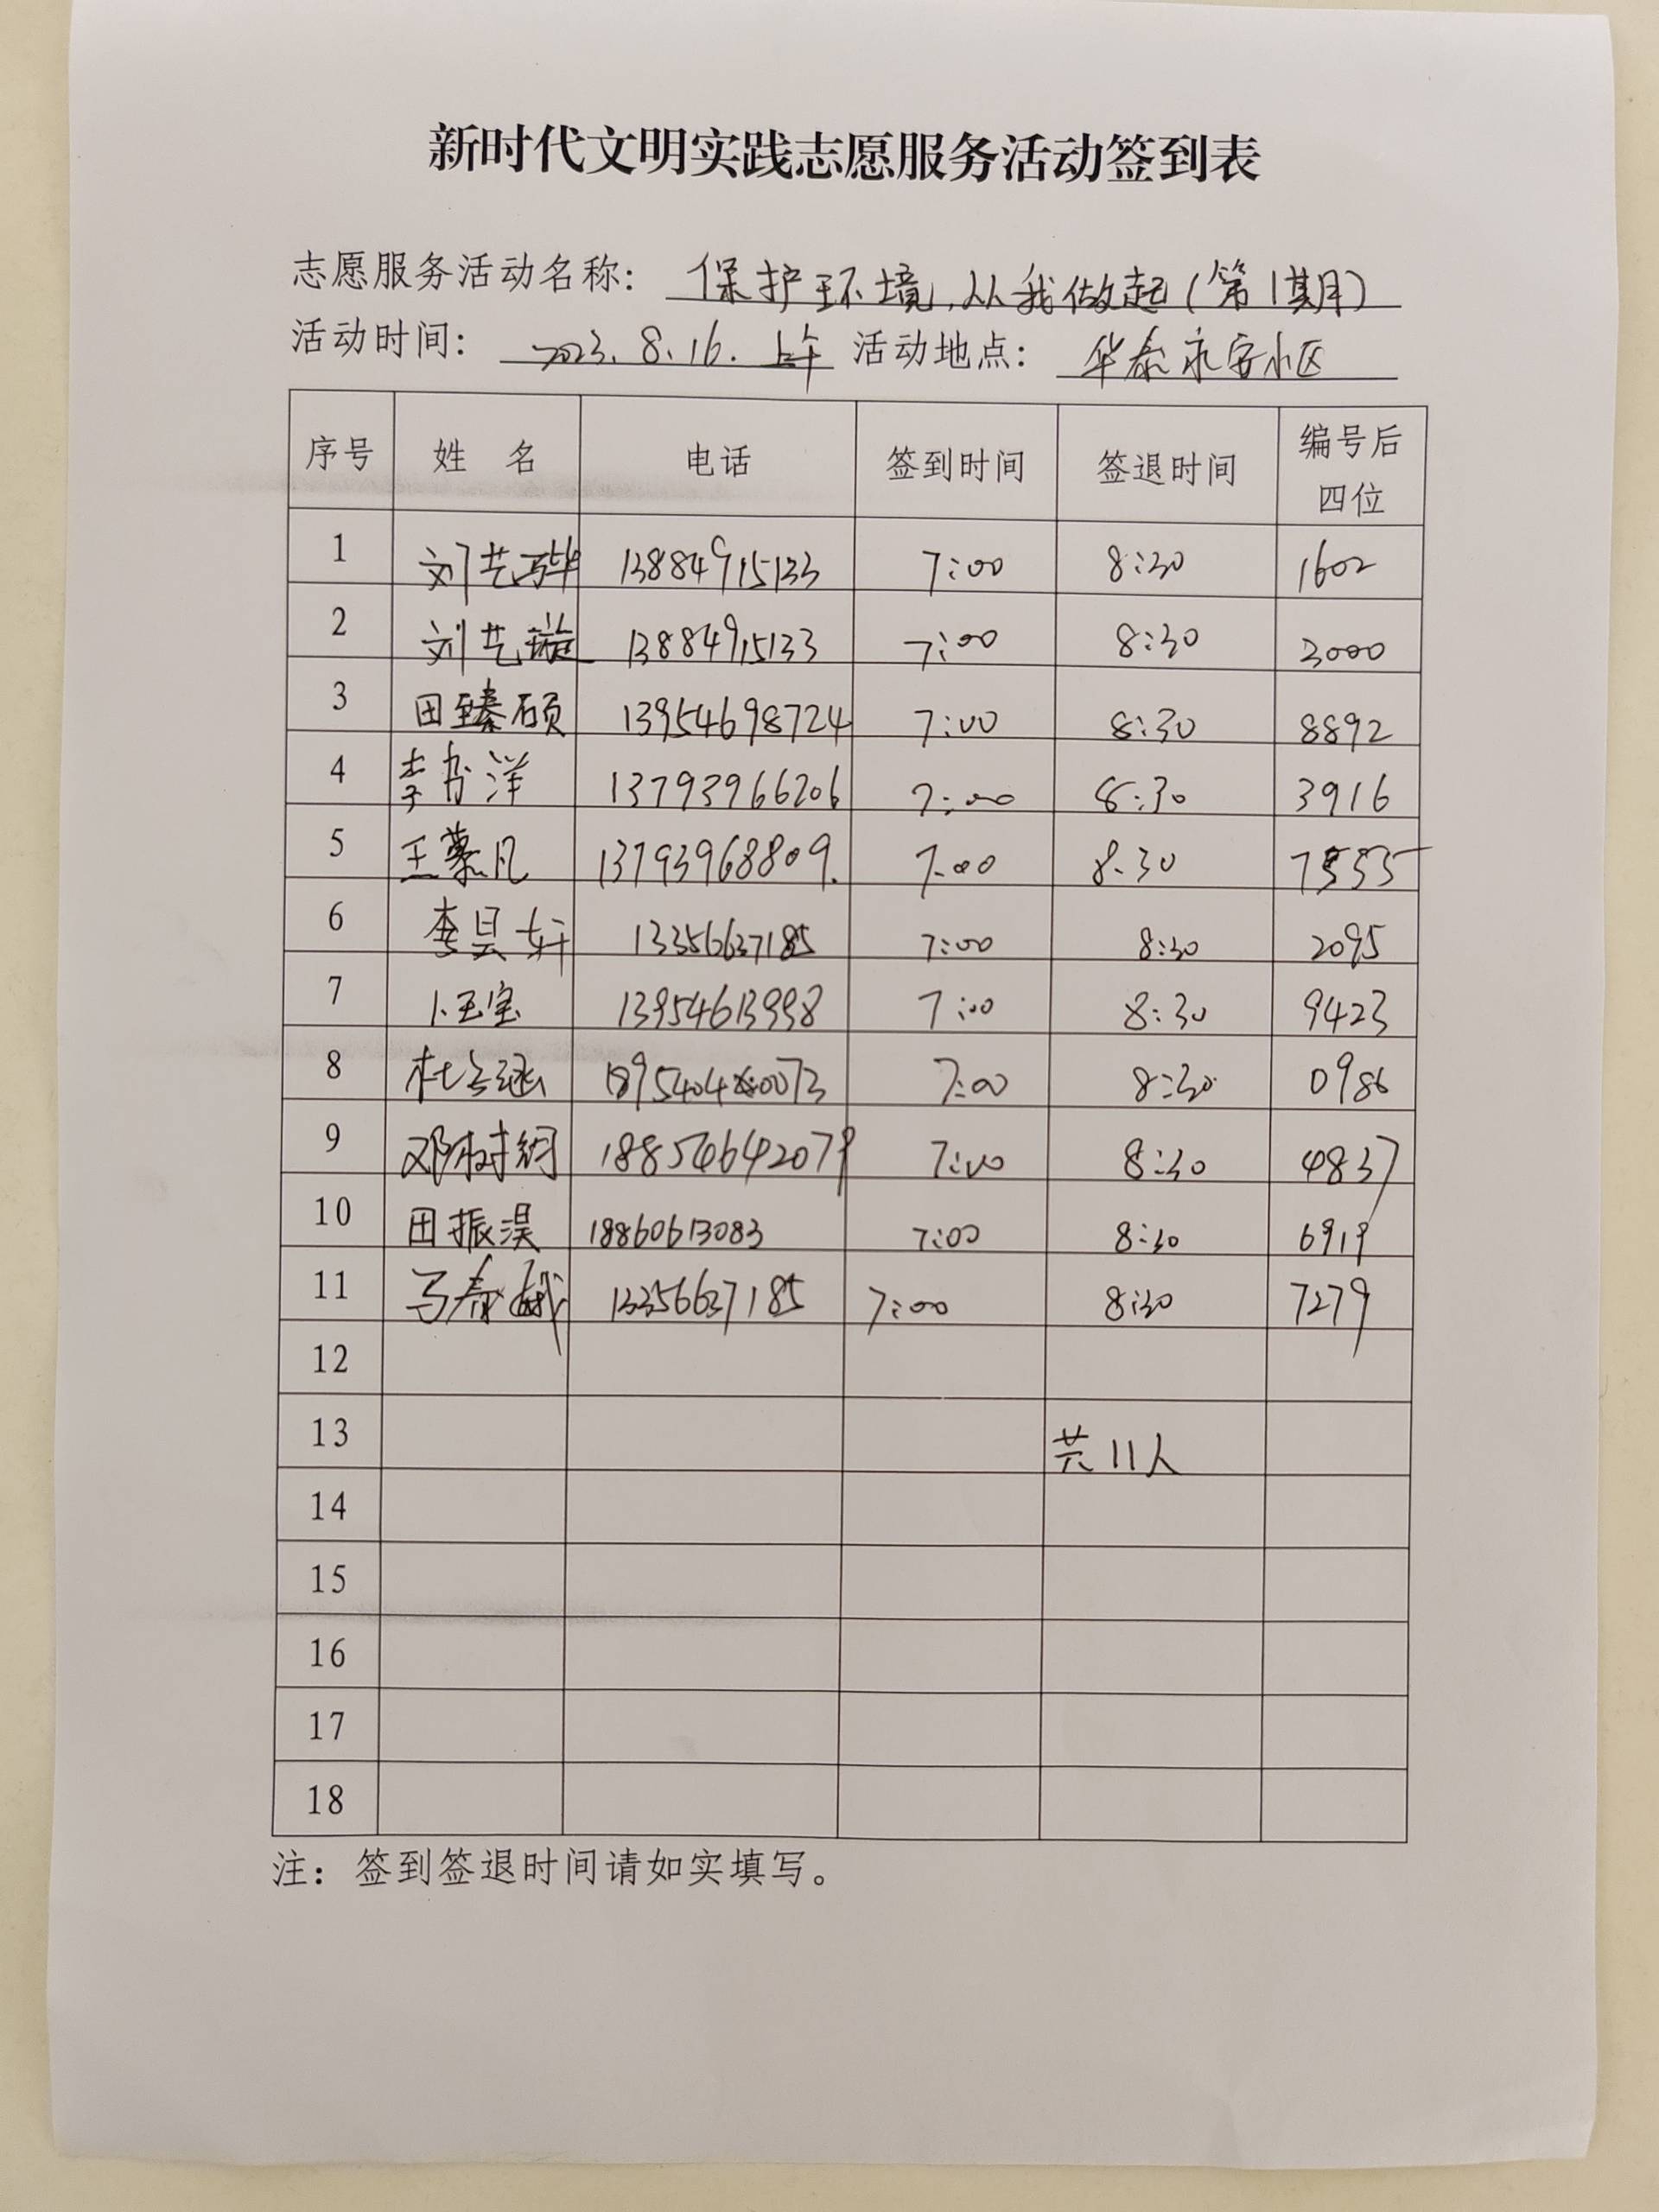 新时代文明实践志愿服务活动签到表
志愿服务活动名称: 保护环境,从我做起(第1期)
活动时间: 2023.8.16.上午 活动地点: 华泰永安小区
序号 姓 名 电话 签到时间 签退时间 编号后四位
1 刘艺骅 13884915133 7:00 8:30 1602
2 刘艺璇 13884915133 7:00 8:30 3000
3 田臻硕 13954698724 7:00 8:30 8892
4 李书洋 13793966206 7:00 8:30 3916
5 王慕凡 13793968809. 7:00 8:30 7555
6 李昊轩 13356637185 7:00 8:30 2095
7 卜玉宝 13954613998 7:00 8:30 9423
8 杜 7:00 8:30 0986
9 邓树钧 18854642079 7:00 8:30 4837
10 田振淏 18860613083 7:00 8:30 6919
11 马春娥 13356637185 7:00 8:30 7279
12
13 共11人
14
15
16
17
18
注: 签到签退时间请如实填写。